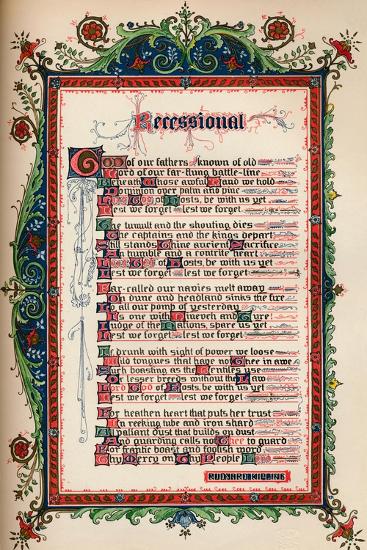 Recessional
God of our fathers known of old
Lord of our far-flung battle-line
Beneath Whose awful Hand we hold
Dominion over palm and pine
Lord God of Hosts, be with us yet
Lest we forget lest we forget
The tumult and the shouting dies
The captains and the kings depart
Still stands Thine ancient Sacrifice
An humble and a contrite heart
Lord God of Hosts, be with us yet
Lest we forget lest we forget
Far-called our navies melt away
On dune and headland sinks the fire
Lo all our pomp of yesterday
Is one with Nineveh and Tyre
Judge of the Nations, spare us yet
Lest we forget lest we forget
If drunk with sight of power we loose
Wild tongues that have not Thee in awe
Such boasting as the Gentiles use
Or lesser breeds without the Law
Lord God of Hosts, be with us yet
Lest we forget lest we forget
For heathen heart that puts her trust
In reeking tube and iron shard
All valiant dust that builds on dust
And guarding calls not Thee to guard
For frantic boast and foolish word
Thy Mercy on Thy People Lord
RUDYARD KIPLING